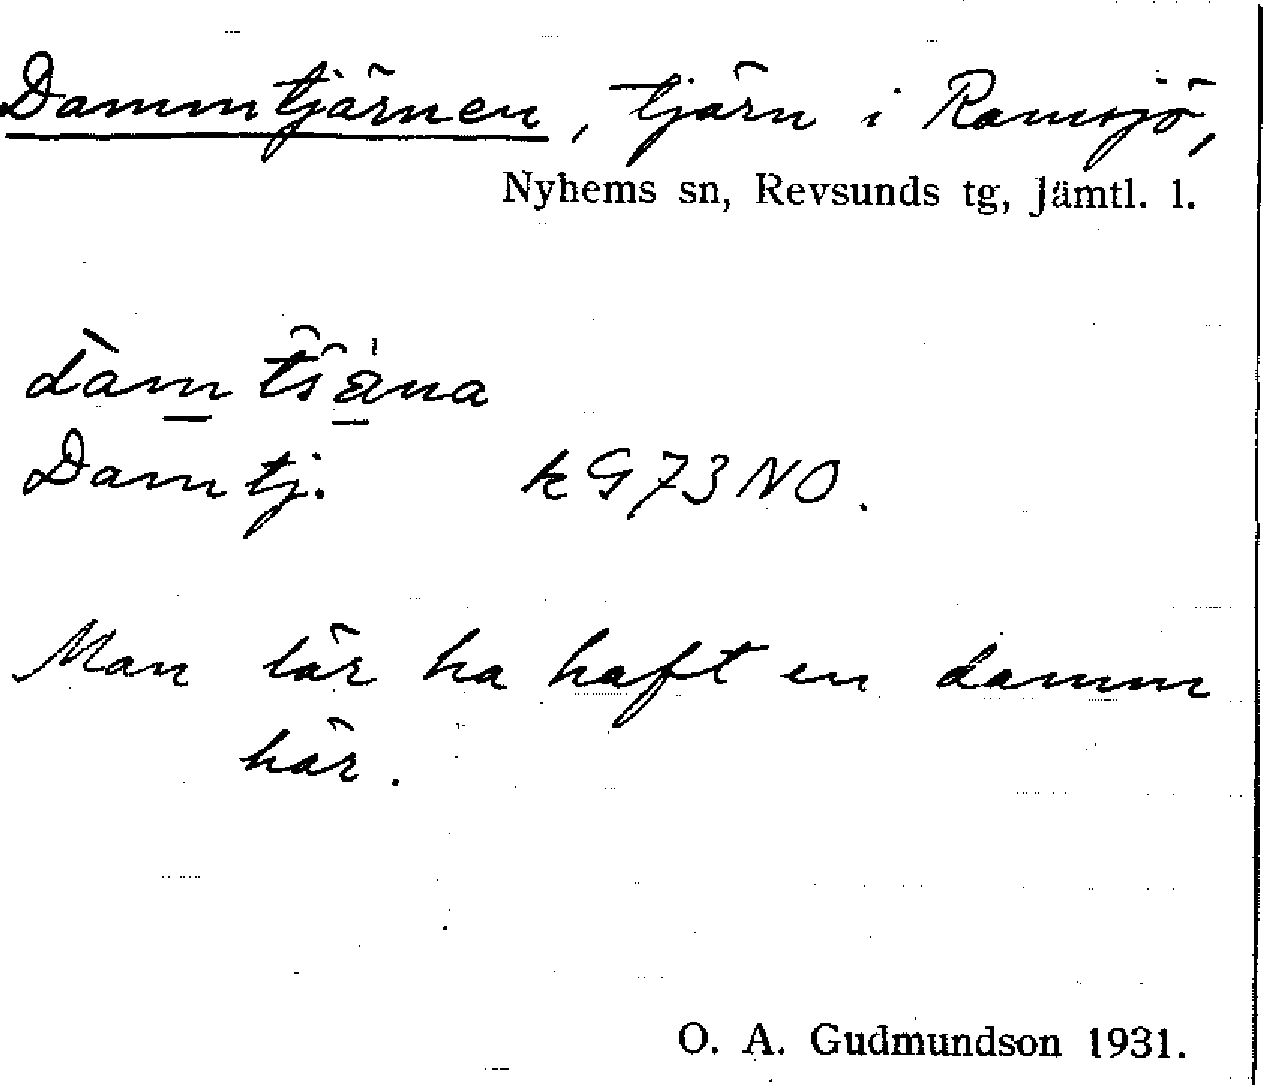 Dammtjärnen, tjärn i Ramsjö,
Nyhems sn, Revsunds tg, Jämtl. l.
Damtj. kG73NO.
Man lär ha haft en damm
här.
O. A. Gudmundson 1931.